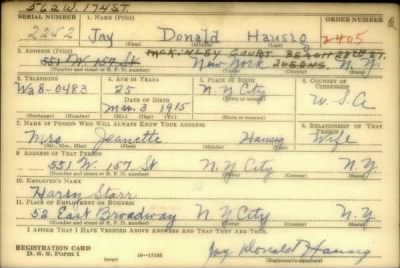 562 W. 174 ST.
SERIAL NUMBER 1. NAME (Print) ORDER NUMBER
2252 Jay Donald Hausig 2405
(First) (Middle) (Last)
2. ADDRESS (Print) McKINLEY COURT
551 W. 157 St New York N.Y.
(Number and street or R. F. D. number) (Town) (County) (State)
3. TELEPHONE 4. AGE IN YEARS 5. PLACE OF BIRTH 6. COUNTRY OF CITIZENSHIP
Wa 8-0483 25 N.Y. City
DATE OF BIRTH
Mar. 3 1915 U.S.A
(Exchange) (Number) (Mo.) (Day) (Yr.) (State or country)
7. NAME OF PERSON WHO WILL ALWAYS KNOW YOUR ADDRESS 8. RELATIONSHIP OF THAT PERSON
Mrs Jeanette Hausig Wife
(Mr., Mrs., Miss) (First) (Middle) (Last)
9. ADDRESS OF THAT PERSON
551 W. 157 St N.Y City N.Y
(Number and street or R. F. D. number) (Town) (County) (State)
10. EMPLOYER'S NAME
Harry Starr
11. PLACE OF EMPLOYMENT OR BUSINESS
52 East Broadway N.Y City N.Y
(Number and street or R. F. D. number) (Town) (County) (State)
I AFFIRM THAT I HAVE VERIFIED ABOVE ANSWERS AND THAT THEY ARE TRUE.
REGISTRATION CARD
D. S. S. Form 1 (over) 16-17105 Jay Donald Hausig